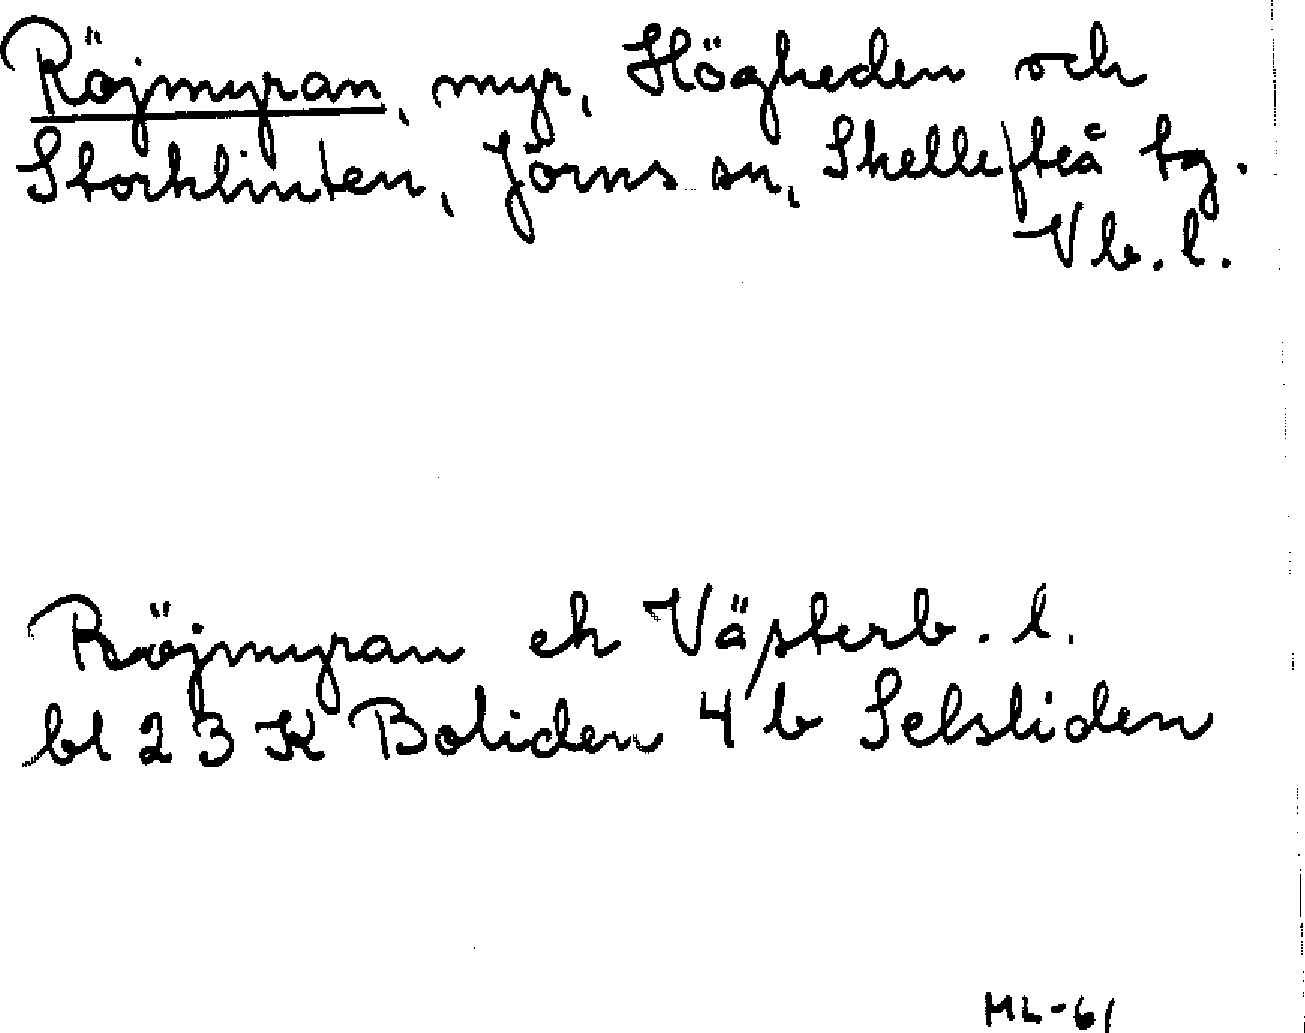 Röjmyran, myr, Högheden och
Storklinten, Jörns sn, Skellefteå tg.
Vb. l.
Röjmyran ek Västerb. l.
bl 23 K Boliden 4 b Selsliden
ML-61